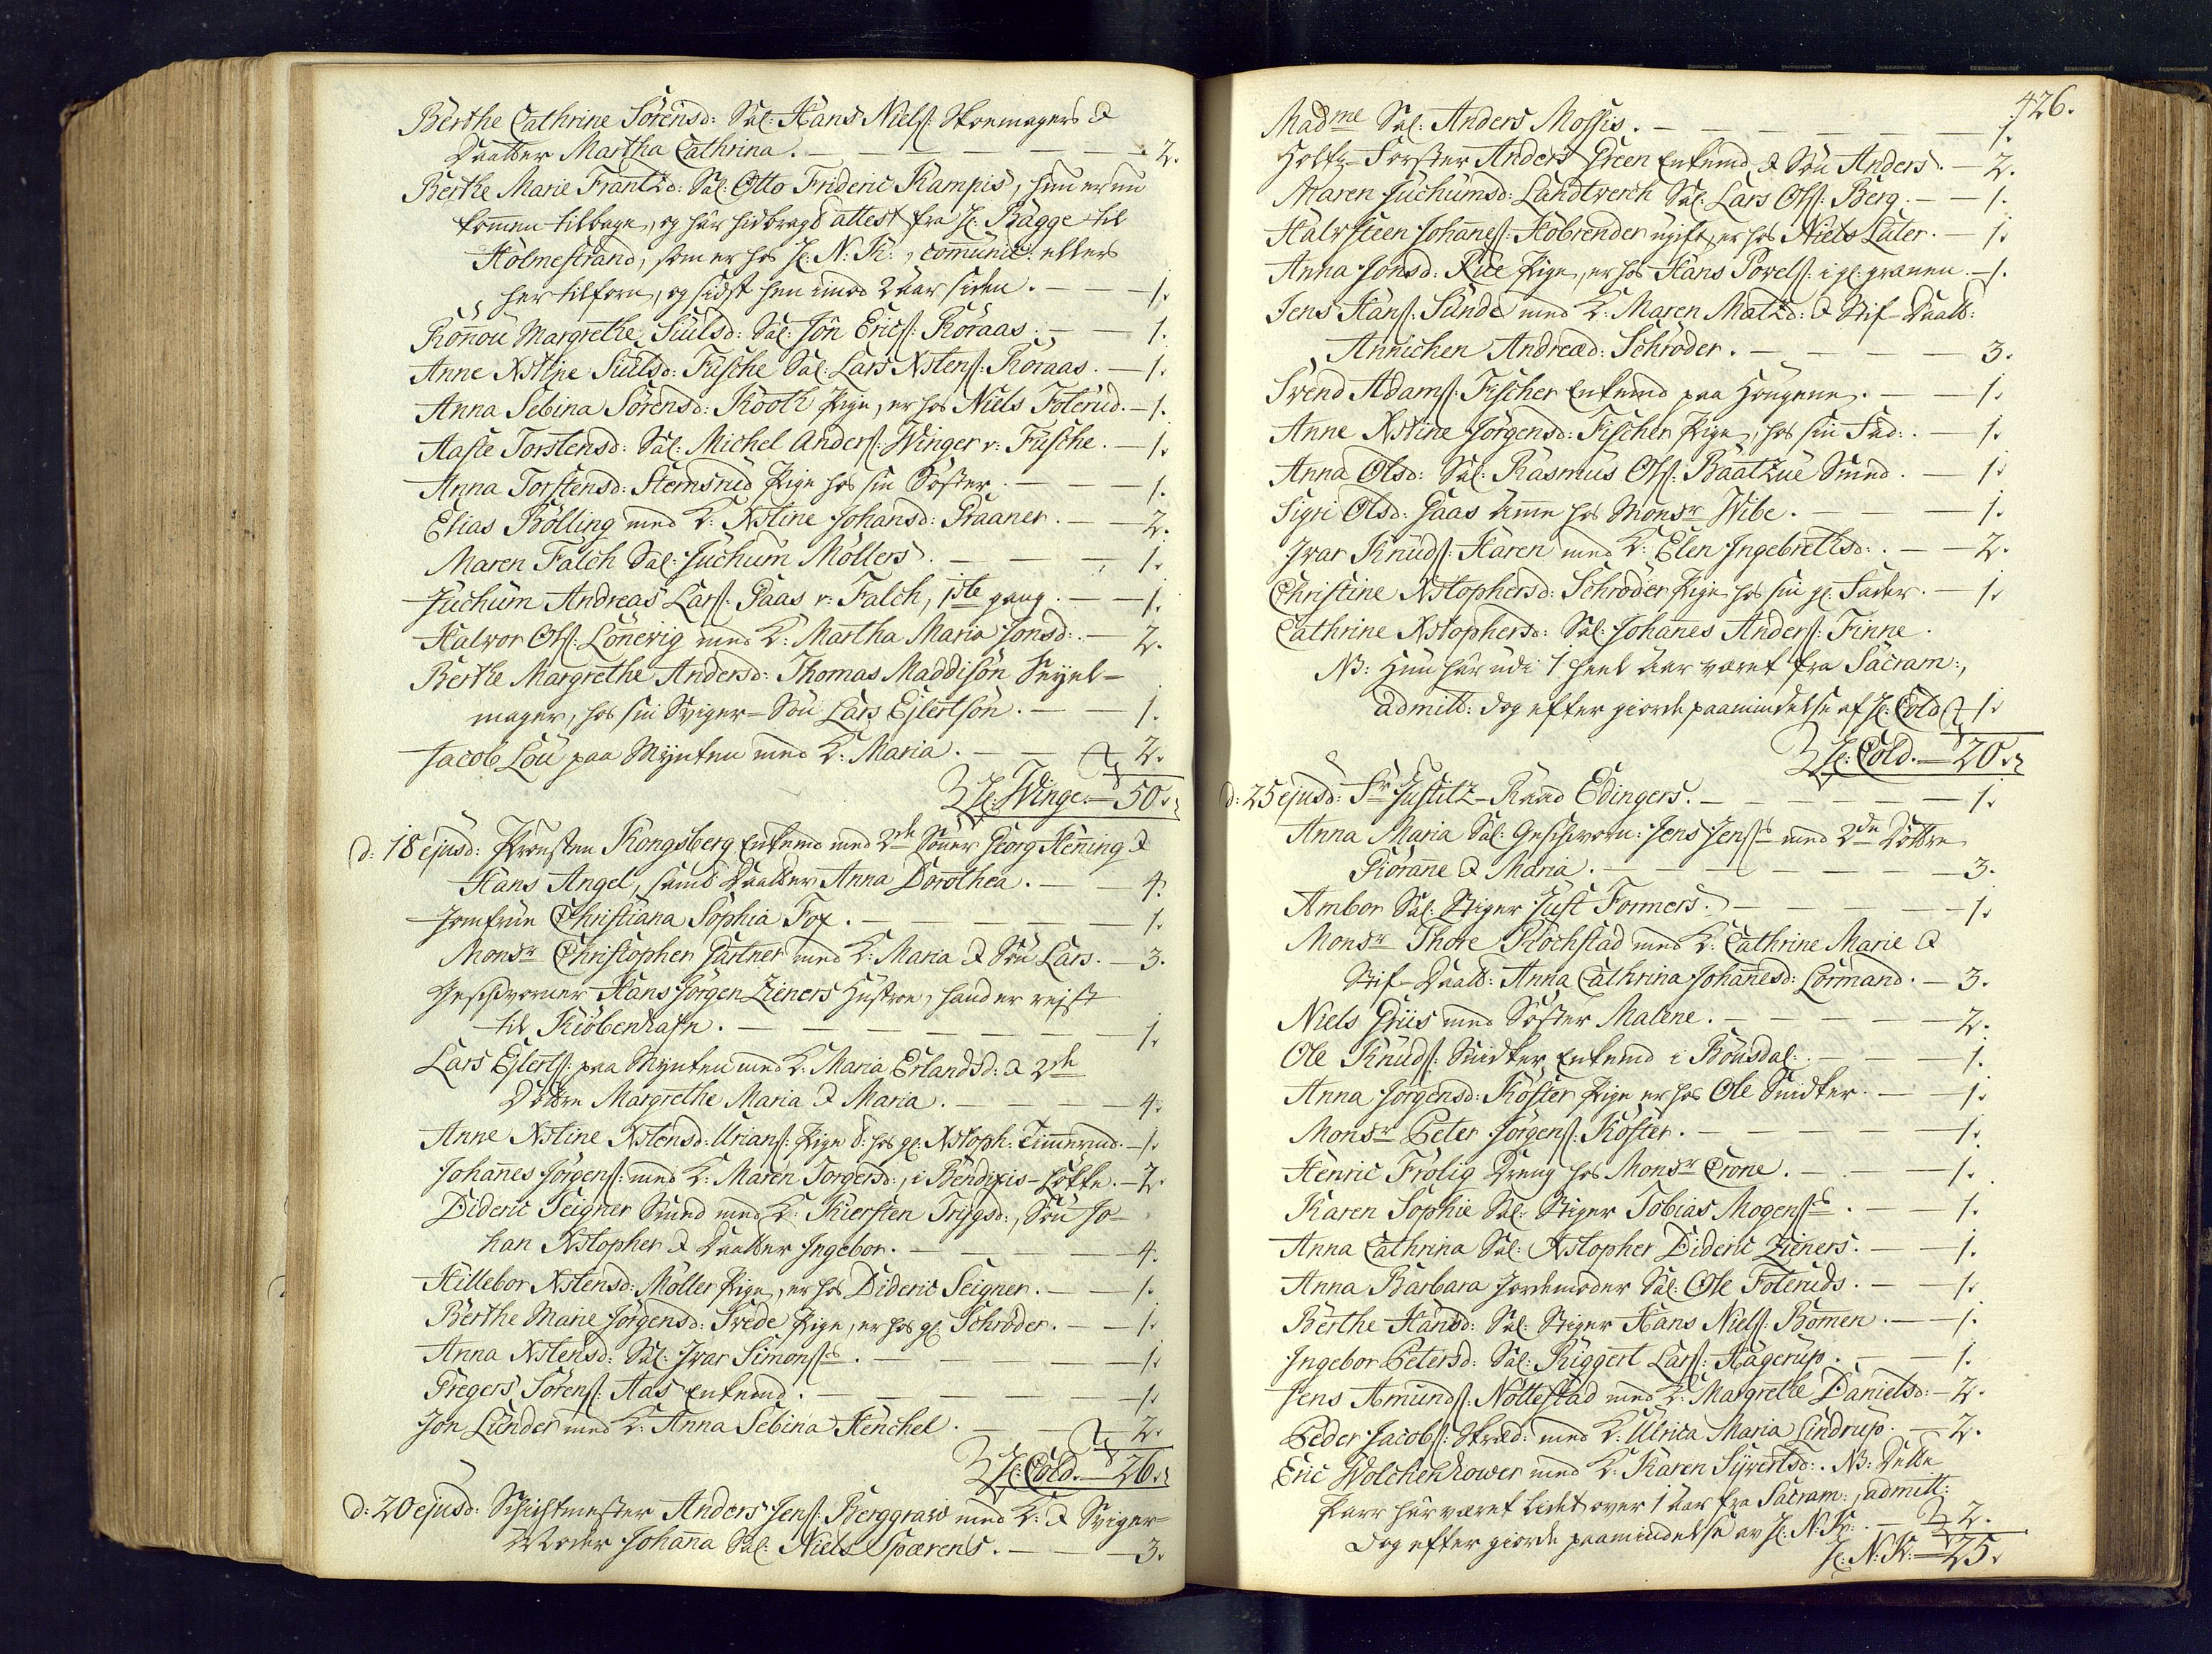 Berthe Cathrine Sörensd: Sal: Hans Niels: Skoemagers &
Daatter Martha Cathrina. — 2.
Berthe Marie Frantzd: Sal: Otto Frideric Kampis, hun er nu
kommen tilbage, og har hidbragt attest fra H: Bagge til
Holmestrand, som er hos H: N: K:, communic: ellers
her tilforn, og sidst hen imod 2 aar siden. — 1.
Rönnou Margrethe Siulsd: Sal: Jon Erics: Röraas. — 1.
Anne Xstine Siulsd: Fusche Sal: Lars Xstens: Röraas. — 1.
Anna Sebina Sörensd: Kooth Pige, er hos Niels Foterud. — 1.
Aaste Torstensd: Sal: Michel Anders: Winger v: Fusche. — 1.
Anna Torstensd: Stemsrud Pige hos sin Söster. — 1.
Elias Bölling med K: Xstine Johansd: Graaner. — 2.
Maren Falch Sal: Juchum Möllers. — 1.
Juchum Andreas Lars: Gaas v: Falch, 1ste gang. — 1.
Halvor Ols: Lönnevig med K: Martha Maria Jonsd: — 2.
Berthe Margrethe Andersd: Thomas Maddison Seyel-
mager, hos sin Sviger-Sön Lars Ejlertsön. — 1.
Jacob Lou paa Mynten med K: Maria. — 2.
H: Winge. — 50.
d: 18 ejusd: Provsten Kongsberg Enkemd med 2de Sönner Georg Henning &
Hans Angel, samt Daatter Anna Dorothea. — 4.
Jomfrue Christiana Sophia Fox. — 1.
Monsr Christopher Gartner med K: Maria & Sön Lars. — 3.
Geschworner Hans Jörgen Zieners Hustroe, hand er rejst
til Kiöbenhafn. — 1.
Lars Ejlerts: paa Mynten med K: Maria Erlandsd: & 2de
Döttre Margrethe Maria & Maria. — 4.
Anne Xstine Xstensd: Urians: Pige d: hos gl: Xstoph: Timmermd. — 1.
Johannes Jörgens: med K: Maren Torgersd:, i Bendixis-Løkke. — 2.
Dideric Seigner Smed med K: Kiersten Trygsd:, Sön Jo-
han Xstopher & Daatter Ingebor. — 4.
Hillebor Xstensd: Möller Pige, er hos Dideric Seigner. — 1.
Berthe Marie Jörgensd: Trede Pige, er hos gl: Schröder. — 1.
Anna Xstensd: Sal: Ivar Simons: — 1.
Gregers Sörens: Aas Enkemd. — 1.
Jon Lunder med K: Anna Sebina Henchel. — 2.
H: Cold. — 26.
d: 20 ejusd: Schichtmester Anders Jens: Berggraw med K: & Sviger-
Moder Johanna Sal: Niels Spærens. — 3.
426.
Madme Sal: Anders Mossis. — 1.
Holtz-Forster Anders Green Enkemd & Sön Anders. — 2.
Maren Juchumsd: Landtwerch Sal: Lars Ols: Berg. — 1.
Halvsteen Johannes: Hobrender ugift, er hos Niels Luter. — 1.
Anna Jonsd: Rue Pige, er hos Hans Povels: i gl: granen. — 1.
Jens Hans: Sunde med K: Maren Matzd: & Stif-Daatt:
Annichen Andread: Schröder. — 3.
Svend Adams: Fischer Enkemd paa Hougene. — 1.
Anne Xstine Jörgensd: Fischer Pige, hos sin Fad: — 1.
Anna Olsd: Sal: Rasmus Ols: Baatzue Smed. — 1.
Sigri Olsd: Gaas Amme hos Monsr Wibe. — 1.
Ivar Knuds: Haren med K: Elen Ingebrethsd: — 2.
Christine Xstophersd: Schröder Pige hos sin gl: Fader. — 1.
Cathrine Xstophersd: Sal: Johannes Anders: Finne.
NB: Hun har udi 1 heel aar været fra Sacram:,
admitt: dog efter giorde paamindelse af H: Cold — 1.
H: Cold. — 20.
d: 25 ejusd: Fr: Justitz-Raad Edingers. — 1.
Anna Maria Sal: Geschworn: Jens Jens: med 2de Döttre
Giöranne & Maria. — 3.
Ambor Sal: Stiger Just Formers. — 1.
Monsr Thore Klochstad med K: Cathrine Marie &
Stif-Daatt: Anna Cathrina Johannesd: Lormand. — 3.
Niels Griis med Söster Malene. — 2.
Ole Knuds: Snidker Enkemd i Bousdal: — 1.
Anna Jörgensd: Köster Pige er hos Ole Snidker. — 1.
Monsr Peter Jörgens: Köster. — 1.
Henric Frölig Dreng hos Monsr Crone. — 1.
Karen Sophie Sal: Stiger Tobias Mogens: — 1.
Anna Cathrina Sal: Xstopher Dideric Zieners. — 1.
Anna Barbara Jordemoder Sal: Ole Foteruds. — 1.
Berthe Hansd: Sal: Stiger Hans Niels: Bömen. — 1.
Ingebor Petersd: Sal: Riggert Lars: Aagerup. — 1.
Jens Amunds: Nöttestad med K: Margrethe Danielsd: — 2.
Peder Jacobs: Skræd: med K: Ulrica Maria Lindrup. — 2.
Eric Wolchenhower med K: Karen Sijvertsd:. NB: Dette
Parr har været lidet over 1 aar fra Sacram:, admitt:
dog efter giorde paamindelse av H: N: K: — 2.
H: N: K: — 25.